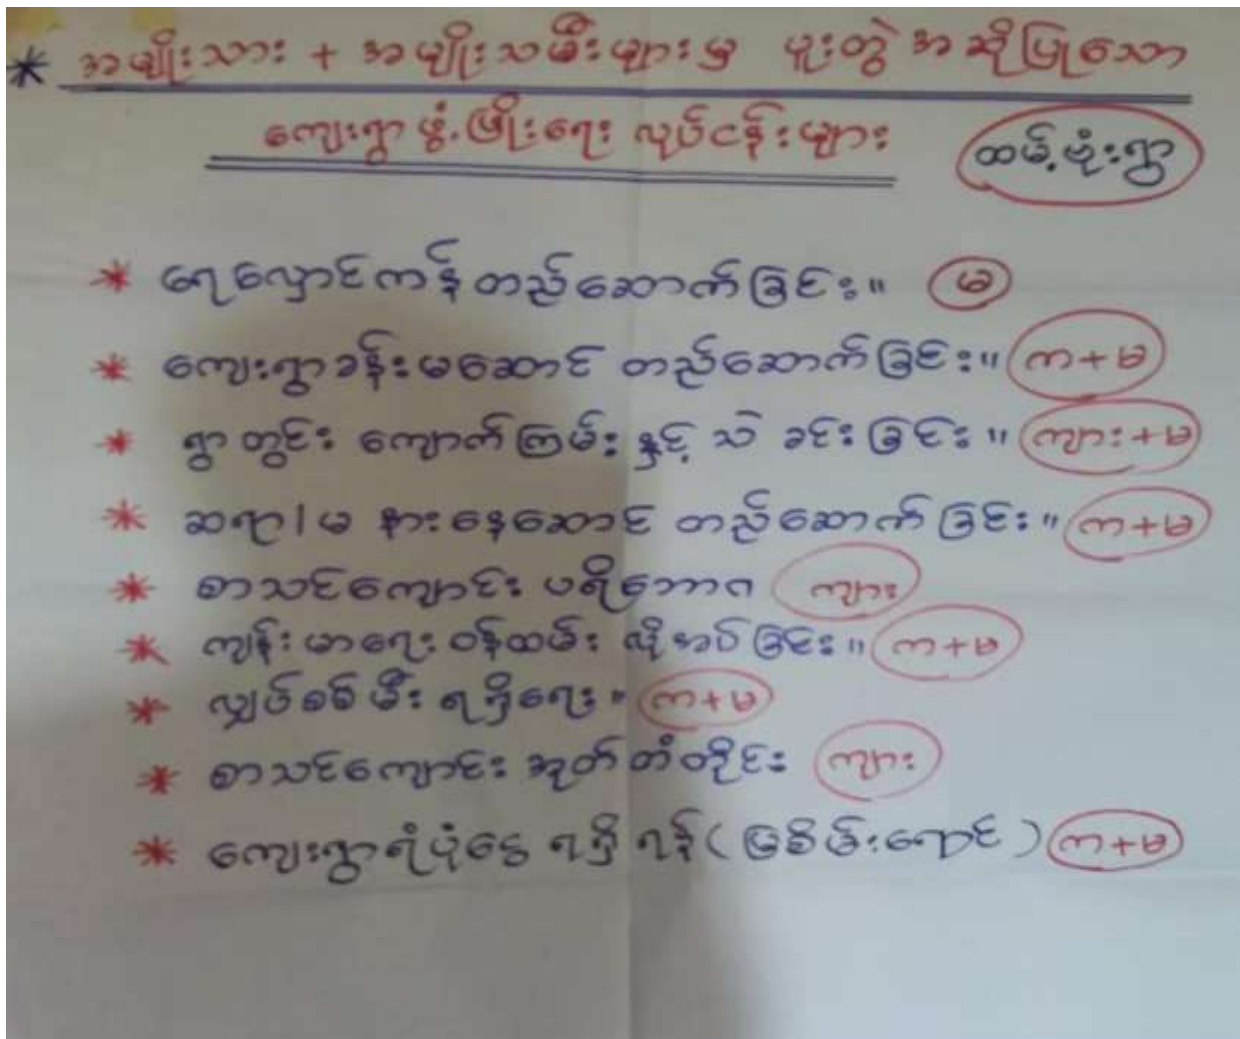 * အမျိုးသား + အမျိုးသမီးများမှ ပူးတွဲအဆိုပြုသော
ကျေးရွာဖွံ့ဖြိုးရေး လုပ်ငန်းများ
ထမ့်ဗုံးရွာ
* ရေလှောင်ကန် တည်ဆောက်ခြင်း။ မ
* ကျေးရွာခန်းမဆောင် တည်ဆောက်ခြင်း။ ကာ+မ
* ရွာတွင်း ကျောက်ကြမ်းနှင့် သဲ ခင်းခြင်း။ ကျား+မ
* ဆရာ/မ နားနေဆောင် တည်ဆောက်ခြင်း။ ကာ+မ
* စာသင်ကျောင်း ပရိဘောဂ ကျား
* ကျန်းမာရေး ဝန်ထမ်း လိုအပ်ခြင်း။ ကာ+မ
* လျှပ်စစ်မီး ရရှိရေး။ ကာ+မ
* စာသင်ကျောင်း အုတ်တံတိုင်း ကျား
* ကျေးရွာရံပုံငွေ ရရှိရန် (မြစိမ်းရောင်) ကာ+မ